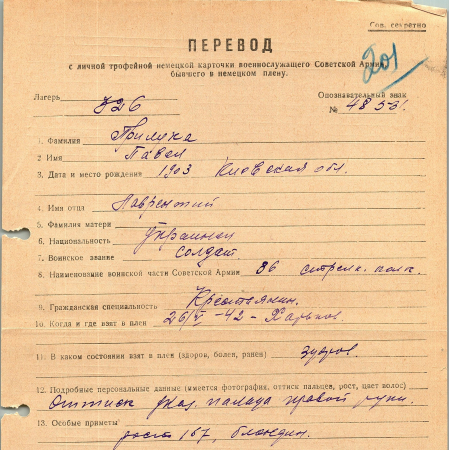 Сов. секретно
ПЕРЕВОД
с личной трофейной немецкой карточки военнослужащего Советской Армии,
бывшего в немецком плену.
201
Лагерь 326 Опознавательный знак
№ 4850
1. Фамилия Прилука
2 Имя Павел
3. Дата и место рождения 1903 Киевская обл.
4. Имя отца Лаврентий
5. Фамилия матери
6. Национальность Украинец
7. Воинское звание солдат
8. Наименование воинской части Советской Армии 86 стрелк. полк.
9. Гражданская специальность Крестьянин.
10. Когда и где взят в плен 26/V-42 - Харьков
11. В каком состоянии взят в плен (здоров, болен, ранен) здоров.
12. Подробные персональные данные (имеется фотография, оттиск пальцев, рост, цвет волос)
Оттиск указ. пальца правой руки.
13. Особые приметы
рост 167, блондин.